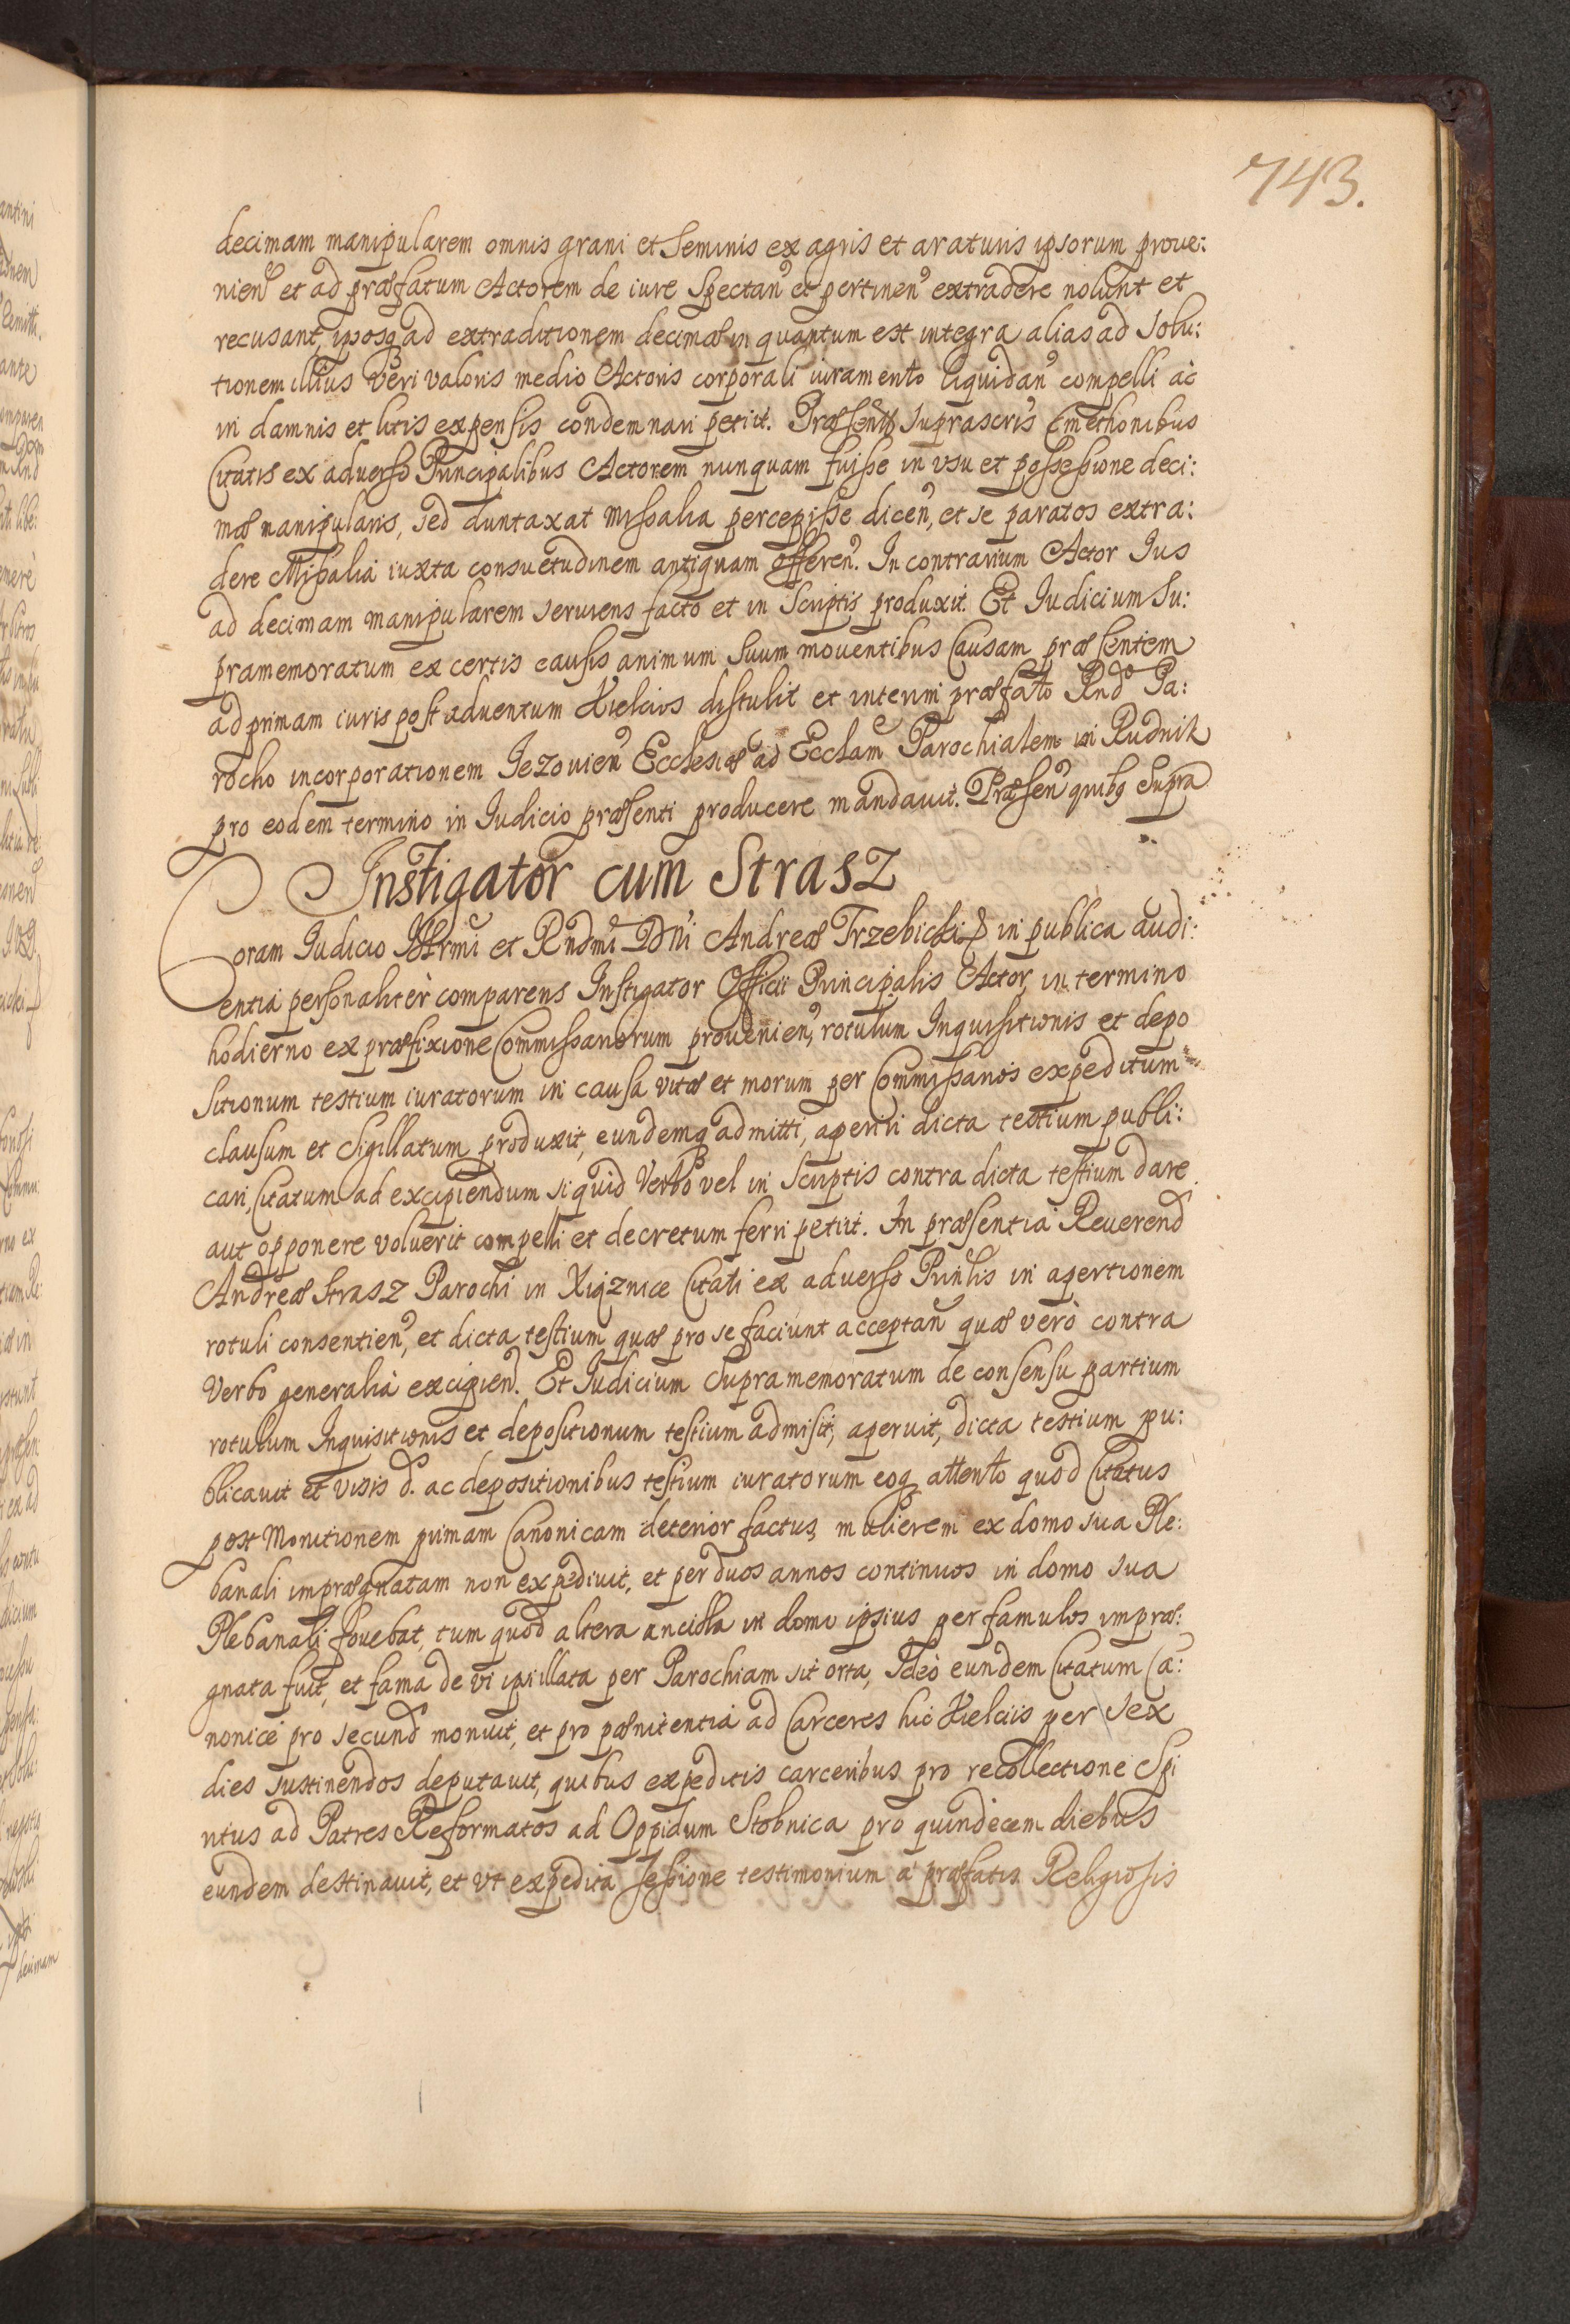 743.
decimam manipularem omnis grani et Seminis ex agris et araturis ipsorum proue:
nien et ad præfatum Actorem de iure Spectan et pertinen extradere nolunt et
recusant, iposq ad extraditionem decimæ in quantum est integra alias ad Solu:
tionem illius Veri valoris medio Actoris corporali iuramento liquidan compelli ac
in damnis et litis expensis condemnari petiit. Præsentib Suprascris Cmethonibus
Citatis ex aduerso Principalibus Actorem nunquam fuisse in vsu et possessione deci:
mæ manipularis, sed duntaxat Missalia percepisse dicen, et se paratos extra:
dere Missalia iuxta consuetudinem antiquam offeren. In contrarium Actor Ius
ad decimam manipularem seruiens facto et in Scriptis produxit. Et Iudicium Su:
pramemoratum ex certis causis animum Suum mouentibus Causam præsentem
ad primam iuris post aduentum Kielcios distulit et interim præfato Rndo Pa:
rocho incorporationem Iezouien Ecclesiæ ad Ecclam Parochialem in Rudnik
pro eodem termino in Iudicio præsenti producere mandauit. Præsen quibq Supra
Instigator cum Strasz
Coram Iudicio Illrmi et Rndmi Dni Andreæ Trzebicki in publica audi:
entia personaliter comparens Instigator Officii Principalis Actor, in termino
hodierno ex præfixione Commissariorum prouenien, rotulum Inquisitionis et depo
sitionum testium iuratorum in causa vitæ et morum per Commissarios expeditum
clausum et Sigillatum produxit, eundemq admitti, aperiri dicta testium publi:
cari, Citatum ad excipiendum si quid Verbo vel in Scriptis contra dicta testium dare
aut opponere voluerit compelli et decretum ferri petiit. In præsentia Reuerend
Andreæ Strasz Parochi in Xiąznice Citati ex aduerso Prinlis in apertionem
rotuli consentien, et dicta testium quæ pro se faciunt acceptan quæ verò contra
Verbo generalia excipien. Et Iudicium Supramemoratum de consensu partium
rotulum Inquisitionis et depositionum testium admisit, aperuit, dicta testium pu:
blicauit et visis d. ac depositionibus testium iuratorum eoq attento quod Citatus
post Monitionem primam Canonicam deterior factus, mulierem ex domo sua Ple:
banali imprægnatam non expediuit, et per duos annos continuos in domo sua
Plebanali fouebat, tum quod altera ancilla in domo ipsius per famulos impræ:
gnata fuit, et fama de vi ipsi illata per Parochiam sit orta, Ideò eundem Citatum Ca:
nonicè pro secund monuit, et pro pænitentia ad Carceres hic Kielciis per sex
dies sustinendos deputauit, quibus expeditis carceribus pro recollectione Spi
ritus ad Patres Reformatos ad Oppidum Stobnica pro quindecem diebus
eundem destinauit, et vt expedita sessione testimonium a præfatis Religiosis